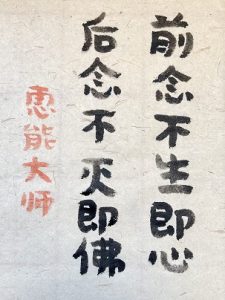 前念不生即心
后念不灭即佛
惠能大师